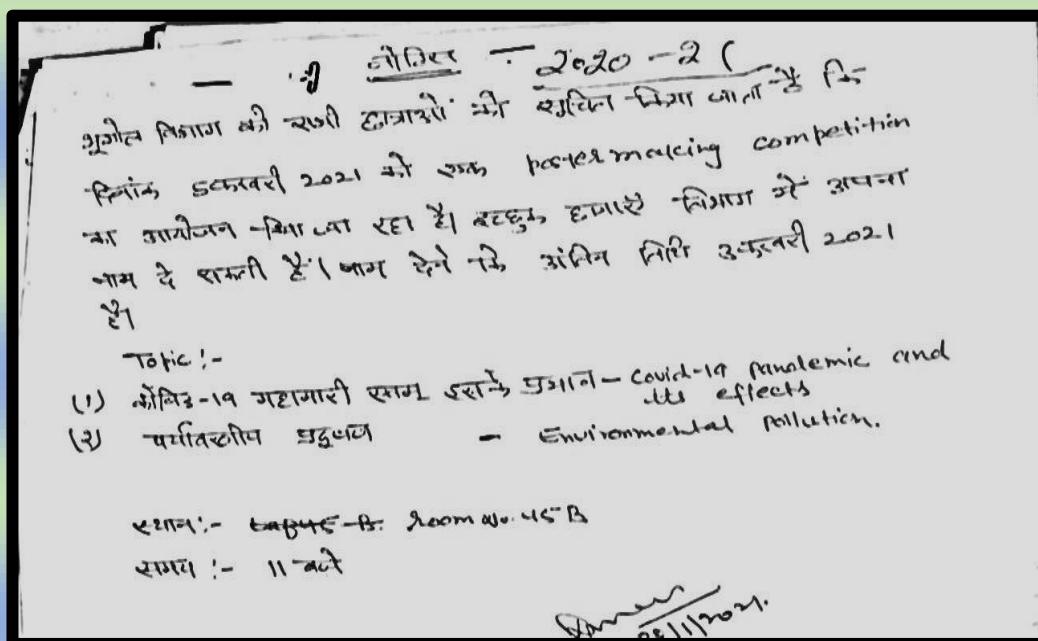 नोटिस - 2020-21
भूगोल विभाग की सभी छात्राओं को सूचित किया जाता है कि
दिनांक 5 फरवरी 2021 को एक poster making competition
का आयोजन किया जा रहा है। इच्छुक छात्राएँ विभाग में अपना
नाम दे सकती हैं। नाम देने कि अंतिम तिथि 3 फरवरी 2021
है।
Topic :-
(1) कोविड-19 महामारी एवम् इसके प्रभाव - Covid-19 pandemic and
its effects
(2) पर्यावरणीय प्रदूषण - Environmental Pollution.
स्थान :- Room No. 45 B
समय :- 11 बजे
/1/2021.